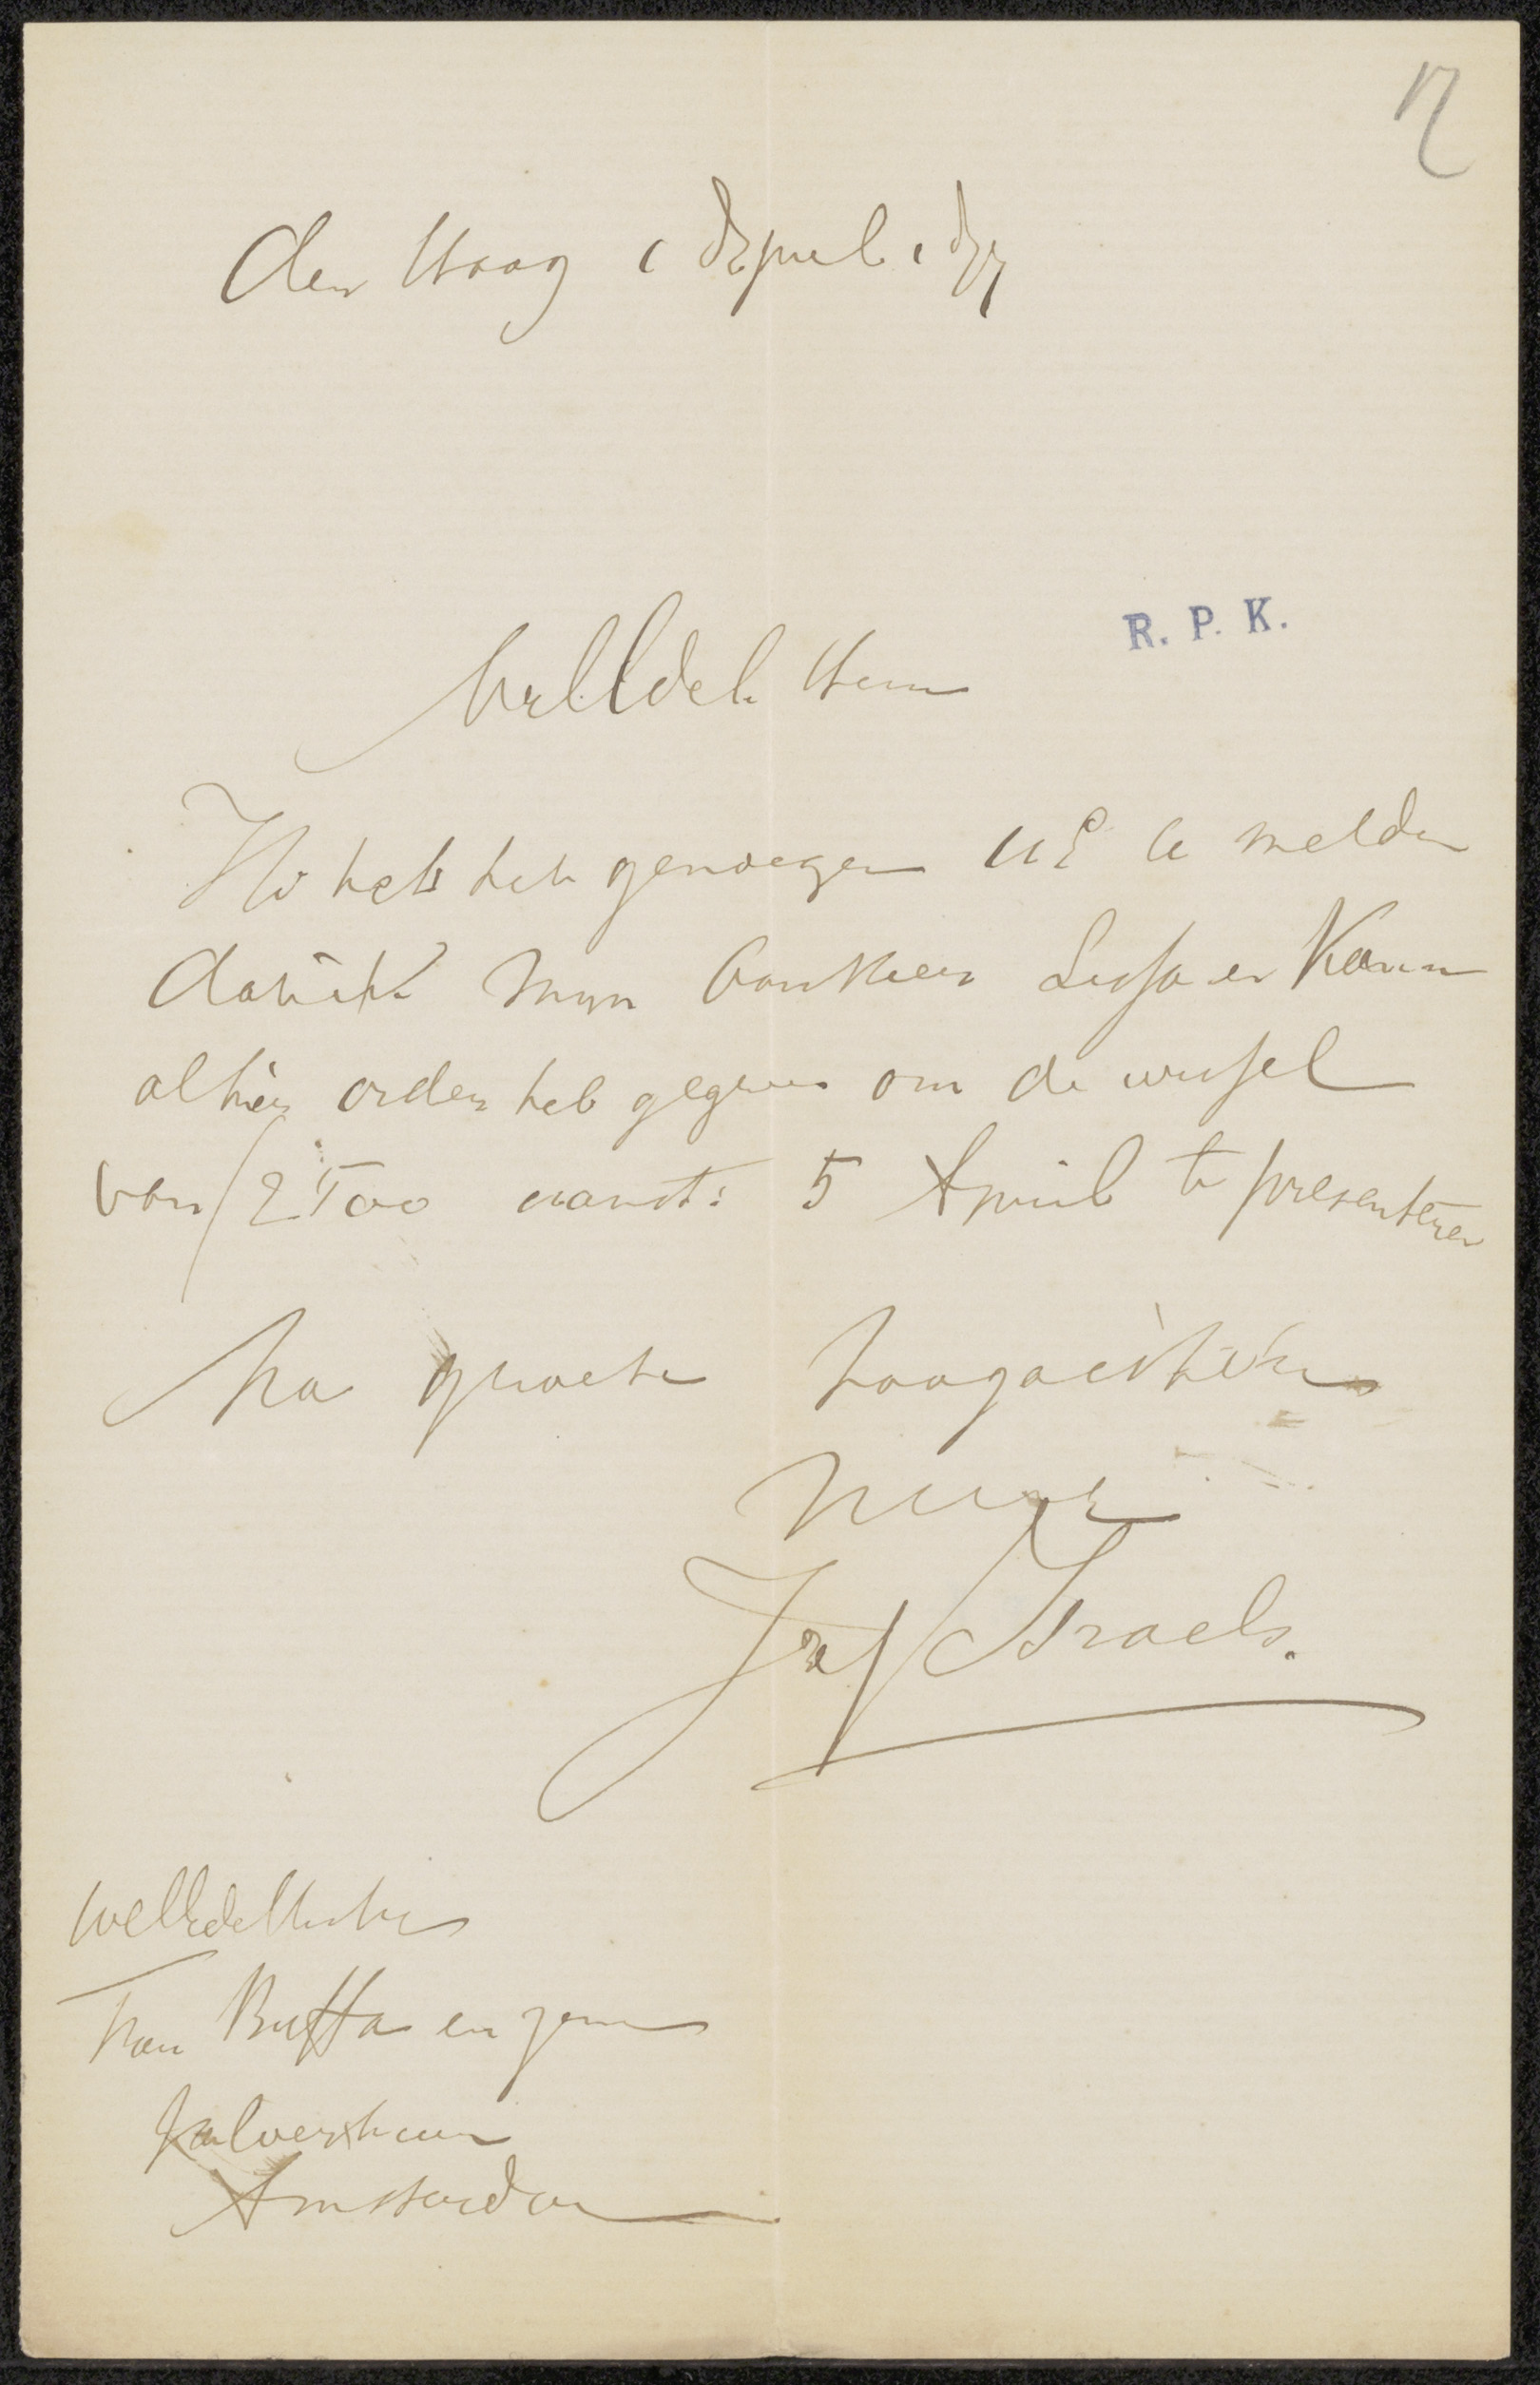 den Haag 1 April
R. P. K.
WelEdele Heer
Ik heb het genoegen UE te melden
dat ik mijn bankier Lissa en Kann
alhier order heb gegeven om de wissel
van ƒ 2500 aanst: 5 April te presenteren
Na groete hoogachtend
Jozef Israels.
WelEdelHeeren
Fran Buffa en zonen
Kalverstraat
Amsterdam